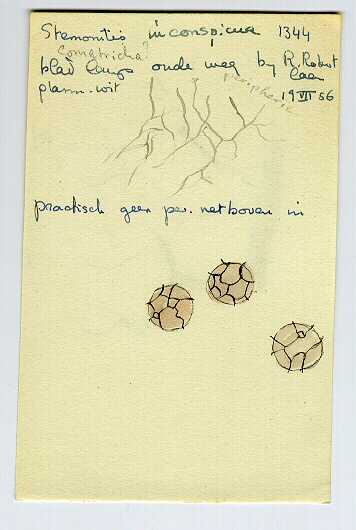 Stemonitis inconspicua 1344
Comatricha?
blad langs oude weg by R. Robert
laan
plasm. wit 19 VII 56
peripherie
practisch geen per. net boven in